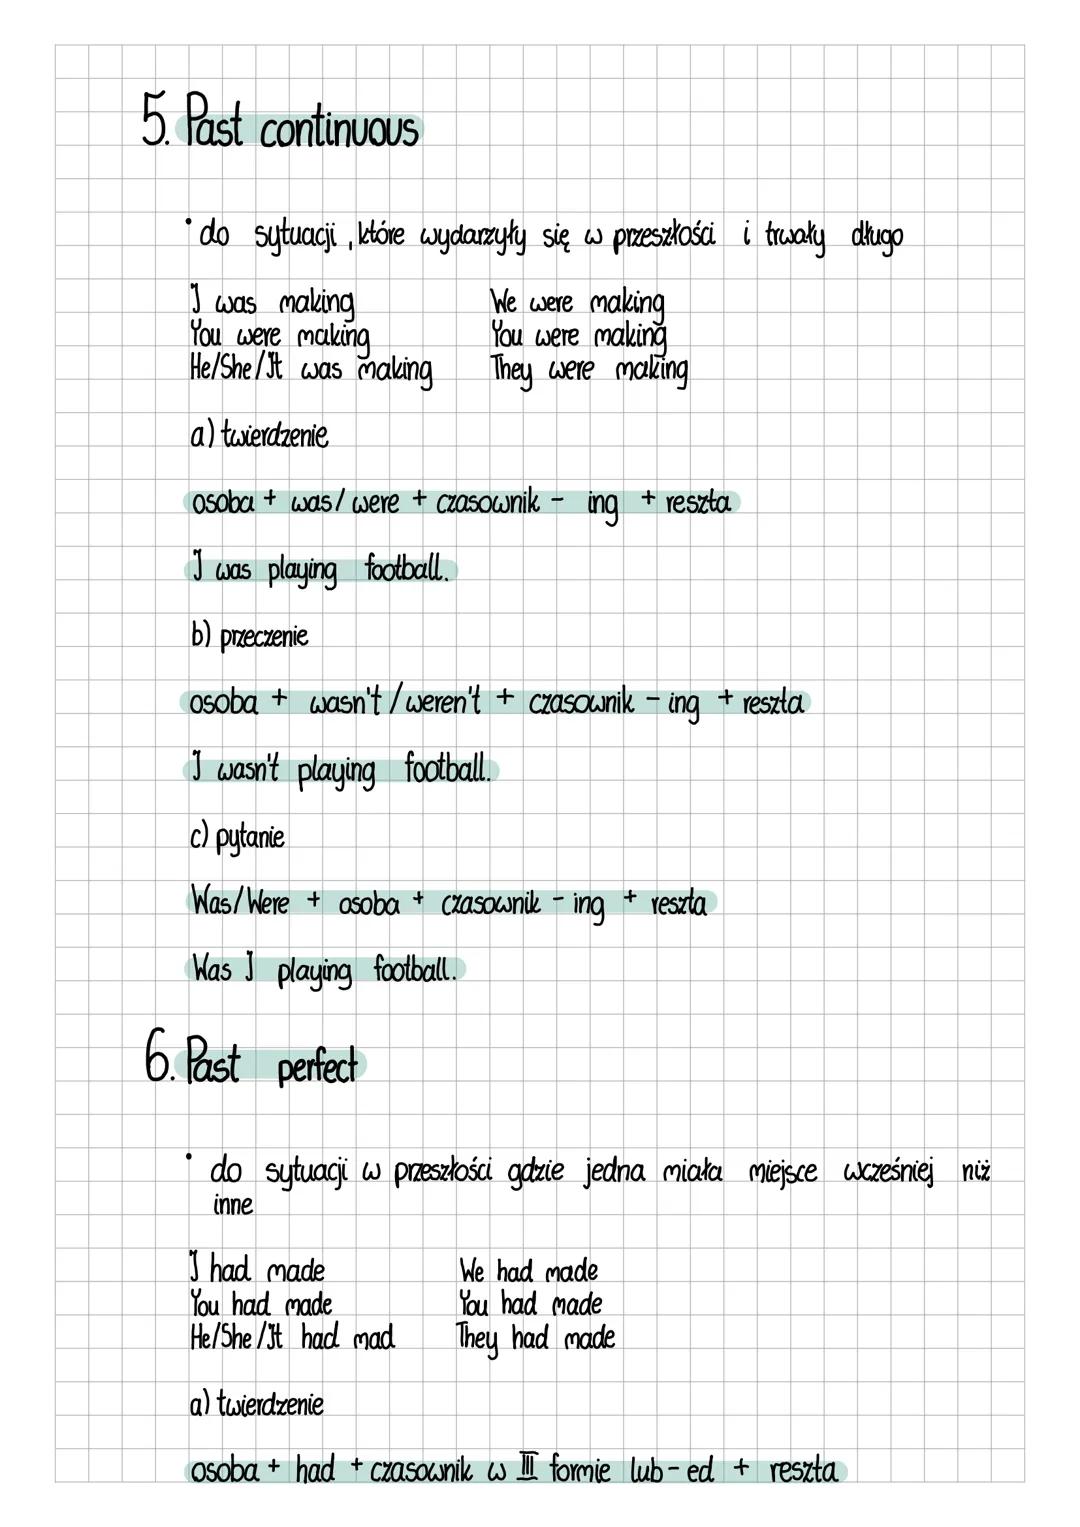 5. Past continuous
• do sytuacji, które wydarzyły się w przeszłości i trwały długo
I was making We were making
You were making You were making
He/She/It was making They were making
a) twierdzenie
osoba + was/were + czasownik - ing + reszta
I was playing football.
b) przeczenie
osoba + wasn't/weren't + czasownik - ing + reszta
I wasn't playing football.
c) pytanie
Was/Were + osoba + czasownik - ing + reszta
Was I playing football.
6. Past perfect
• do sytuacji w przeszłości gdzie jedna miała miejsce wcześniej niż
inne
I had made We had made
You had made You had made
He/She/It had mad They had made
a) twierdzenie
osoba + had + czasownik w III formie lub - ed + reszta